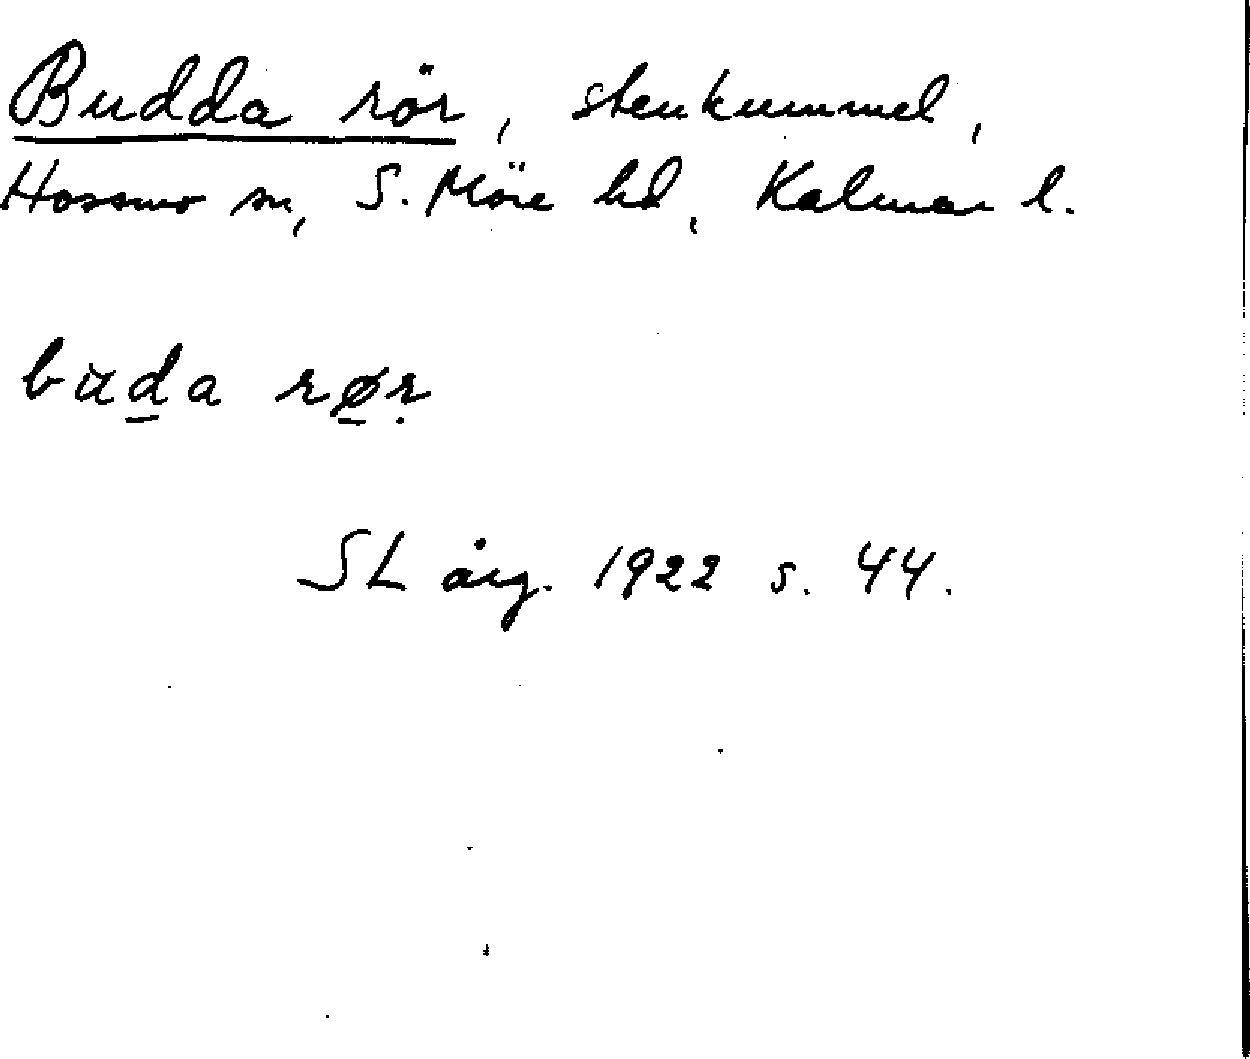 Budda rör, stenkummel,
Hossmo sn, S. Möre hd, Kalmar l.
buḏa rø̱ṛ
SL årg. 1922 s. 44.